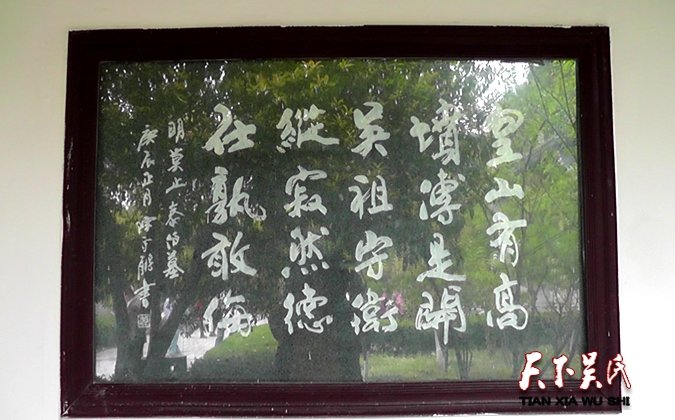 皇山有高
墳傳是開
吳祖守衛
縱寂然德
在孰敢侮
明莫止泰伯墓
庚辰正月 書
天下吴氏
TIAN XIA WU SHI